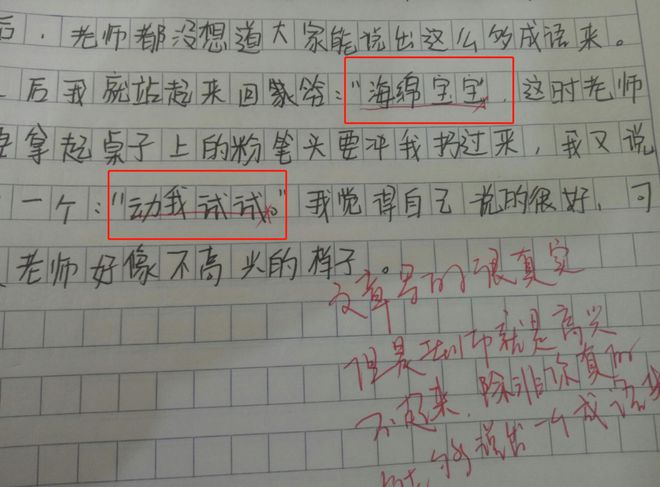 后，老师都没想道大家能说出这么多成语来。
后我就站起来回答："海绵宝宝，这时老师
拿起桌子上的粉笔头要冲我扔过来，我又说
一个："动我试试。"我觉得自己说的很好，可
老师好像不高兴的样子。
文章写的很真实
但是老师就是高兴
不起来，除非你真的
能够说出一个成语